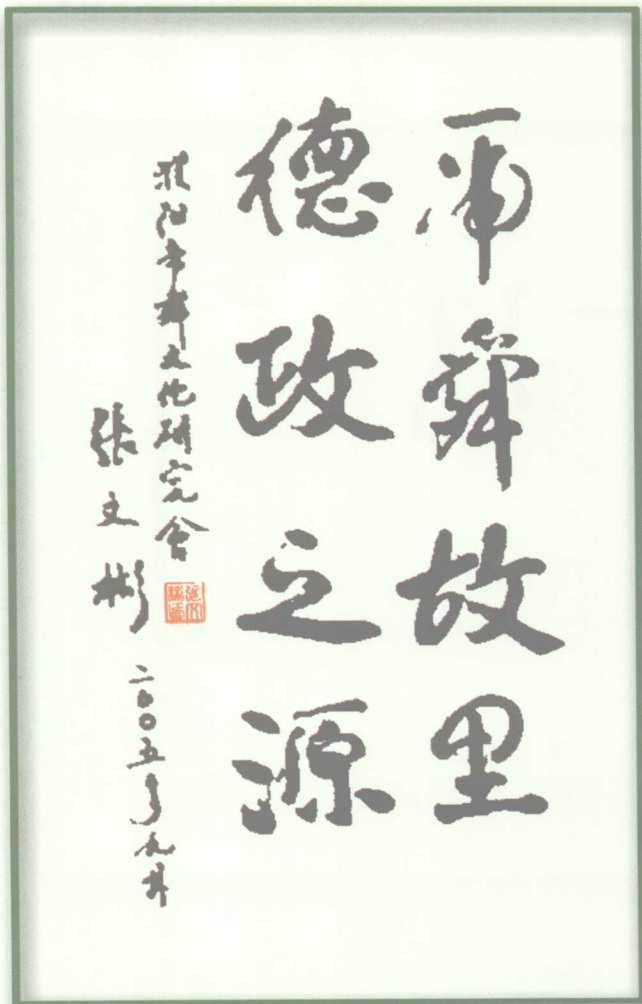 帝舜故里
德政之源
濮阳市舜文化研究會
張文彬
二〇〇五年九月